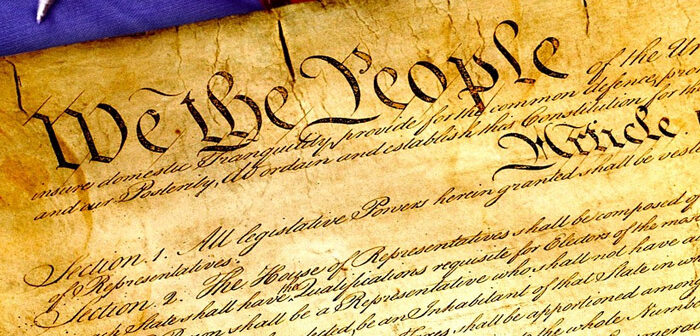 We the People of the Un
insure domestic Tranquility, provide for the common defence, pro
and our Posterity, do ordain and establish this Constitution for the
Article.
Section. 1. All legislative Powers herein granted shall be veste
of Representatives.
Section. 2. The House of Representatives shall be composed of
each State shall have the Qualifications requisite for Electors of the most
Person shall be a Representative who shall not have a
elected, be an Inhabitant of that State in w
shall be apportioned among
the whole Numb